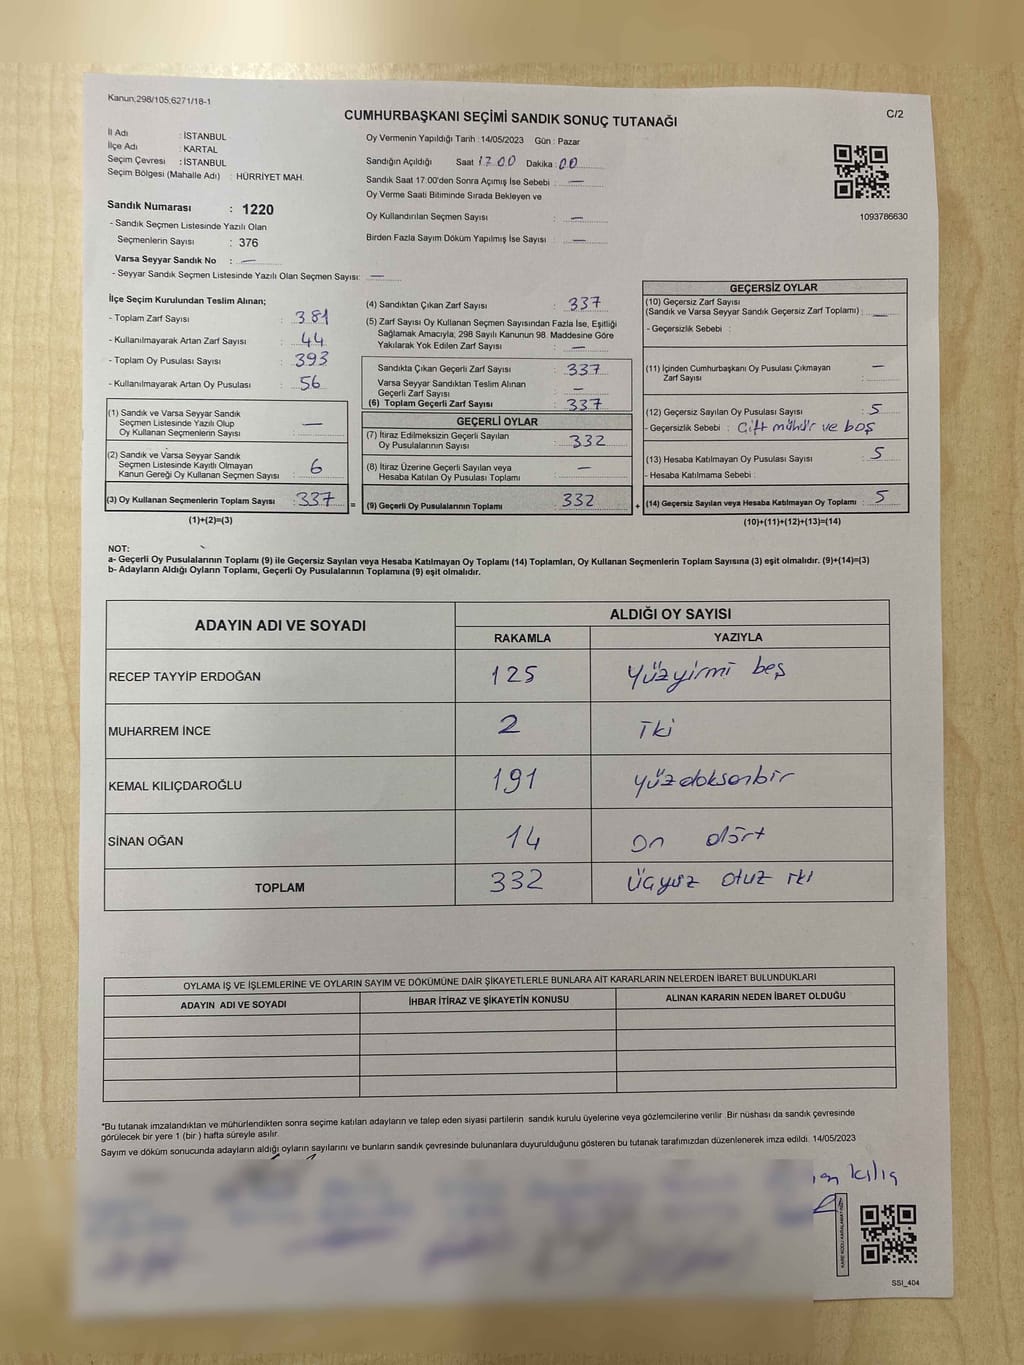 Kanun;298/105;6271/18-1
C/2
CUMHURBAŞKANI SEÇİMİ SANDIK SONUÇ TUTANAĞI
İl Adı : İSTANBUL
İlçe Adı : KARTAL
Seçim Çevresi : İSTANBUL
Seçim Bölgesi (Mahalle Adı) : HÜRRİYET MAH.
Sandık Numarası : 1220
- Sandık Seçmen Listesinde Yazılı Olan
Seçmenlerin Sayısı : 376
Varsa Seyyar Sandık No : —
- Seyyar Sandık Seçmen Listesinde Yazılı Olan Seçmen Sayısı: —
Oy Vermenin Yapıldığı Tarih : 14/05/2023 Gün : Pazar
Sandığın Açıldığı Saat 17.00 Dakika : 00
Sandık Saat 17.00'den Sonra Açımış İse Sebebi : —
Oy Verme Saati Bitiminde Sırada Bekleyen ve
Oy Kullandırılan Seçmen Sayısı : —
Birden Fazla Sayım Döküm Yapılmış İse Sayısı : —
1093786630
İlçe Seçim Kurulundan Teslim Alınan;
- Toplam Zarf Sayısı : 381
- Kullanılmayarak Artan Zarf Sayısı : 44
- Toplam Oy Pusulası Sayısı : 393
- Kullanılmayarak Artan Oy Pusulası : 56
(1) Sandık ve Varsa Seyyar Sandık
Seçmen Listesinde Yazılı Olup
Oy Kullanan Seçmenlerin Sayısı : —
(2) Sandık ve Varsa Seyyar Sandık
Seçmen Listesinde Kayıtlı Olmayan
Kanun Gereği Oy Kullanan Seçmen Sayısı : 6
(3) Oy Kullanan Seçmenlerin Toplam Sayısı : 337
(1)+(2)=(3)
(4) Sandıktan Çıkan Zarf Sayısı : 337
(5) Zarf Sayısı Oy Kullanan Seçmen Sayısından Fazla İse, Eşitliği
Sağlamak Amacıyla, 298 Sayılı Kanunun 98. Maddesine Göre
Yakılarak Yok Edilen Zarf Sayısı : —
Sandıkta Çıkan Geçerli Zarf Sayısı : 337
Varsa Seyyar Sandıktan Teslim Alınan
Geçerli Zarf Sayısı : —
(6) Toplam Geçerli Zarf Sayısı : 337
GEÇERLİ OYLAR
(7) İtiraz Edilmeksizin Geçerli Sayılan
Oy Pusulalarının Sayısı : 332
(8) İtiraz Üzerine Geçerli Sayılan veya
Hesaba Katılan Oy Pusulası Toplamı : —
= (9) Geçerli Oy Pusulalarının Toplamı : 332
GEÇERSİZ OYLAR
(10) Geçersiz Zarf Sayısı
(Sandık ve Varsa Seyyar Sandık Geçersiz Zarf Toplamı) : —
- Geçersizlik Sebebi :
(11) İçinden Cumhurbaşkanı Oy Pusulası Çıkmayan
Zarf Sayısı : —
(12) Geçersiz Sayılan Oy Pusulası Sayısı : 5
- Geçersizlik Sebebi : Çift mühür ve boş
(13) Hesaba Katılmayan Oy Pusulası Sayısı : 5
- Hesaba Katılmama Sebebi :
+ (14) Geçersiz Sayılan veya Hesaba Katılmayan Oy Toplamı : 5
(10)+(11)+(12)+(13)=(14)
NOT:
a- Geçerli Oy Pusulalarının Toplamı (9) ile Geçersiz Sayılan veya Hesaba Katılmayan Oy Toplamı (14) Toplamları, Oy Kullanan Seçmenlerin Toplam Sayısına (3) eşit olmalıdır. (9)+(14)=(3)
b- Adayların Aldığı Oyların Toplamı, Geçerli Oy Pusulalarının Toplamına (9) eşit olmalıdır.
ADAYIN ADI VE SOYADI
ALDIĞI OY SAYISI
RAKAMLA YAZIYLA
RECEP TAYYİP ERDOĞAN 125 Yüzyirmi beş
MUHARREM İNCE 2 İki
KEMAL KILIÇDAROĞLU 191 yüzdoksanbir
SİNAN OĞAN 14 On dört
TOPLAM 332 Üçyüz otuz iki
OYLAMA İŞ VE İŞLEMLERİNE VE OYLARIN SAYIM VE DÖKÜMÜNE DAİR ŞİKAYETLERLE BUNLARA AİT KARARLARIN NELERDEN İBARET BULUNDUKLARI
ADAYIN ADI VE SOYADI İHBAR İTİRAZ VE ŞİKAYETİN KONUSU ALINAN KARARIN NEDEN İBARET OLDUĞU
*Bu tutanak imzalandıktan ve mühürlendikten sonra seçime katılan adayların ve talep eden siyasi partilerin sandık kurulu üyelerine veya gözlemcilerine verilir. Bir nüshası da sandık çevresinde
görülecek bir yere 1 (bir) hafta süreyle asılır.
Sayım ve döküm sonucunda adayların aldığı oyların sayılarını ve bunların sandık çevresinde bulunanlara duyurulduğunu gösteren bu tutanak tarafımızdan düzenlenerek imza edildi. 14/05/2023
kılıç
SSI_404